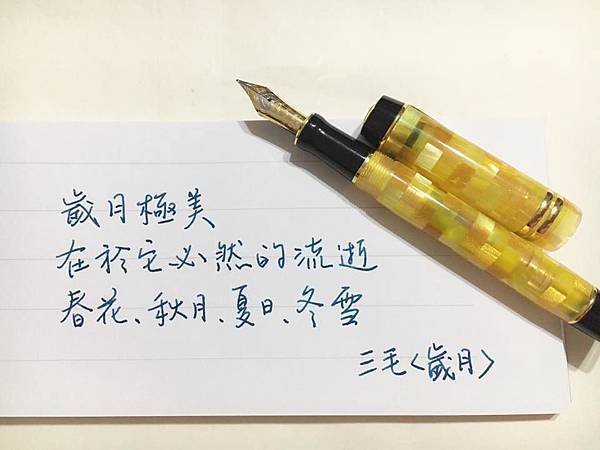 歲月極美
在於它必然的流逝
春花、秋月、夏日、冬雪
三毛〈歲月〉